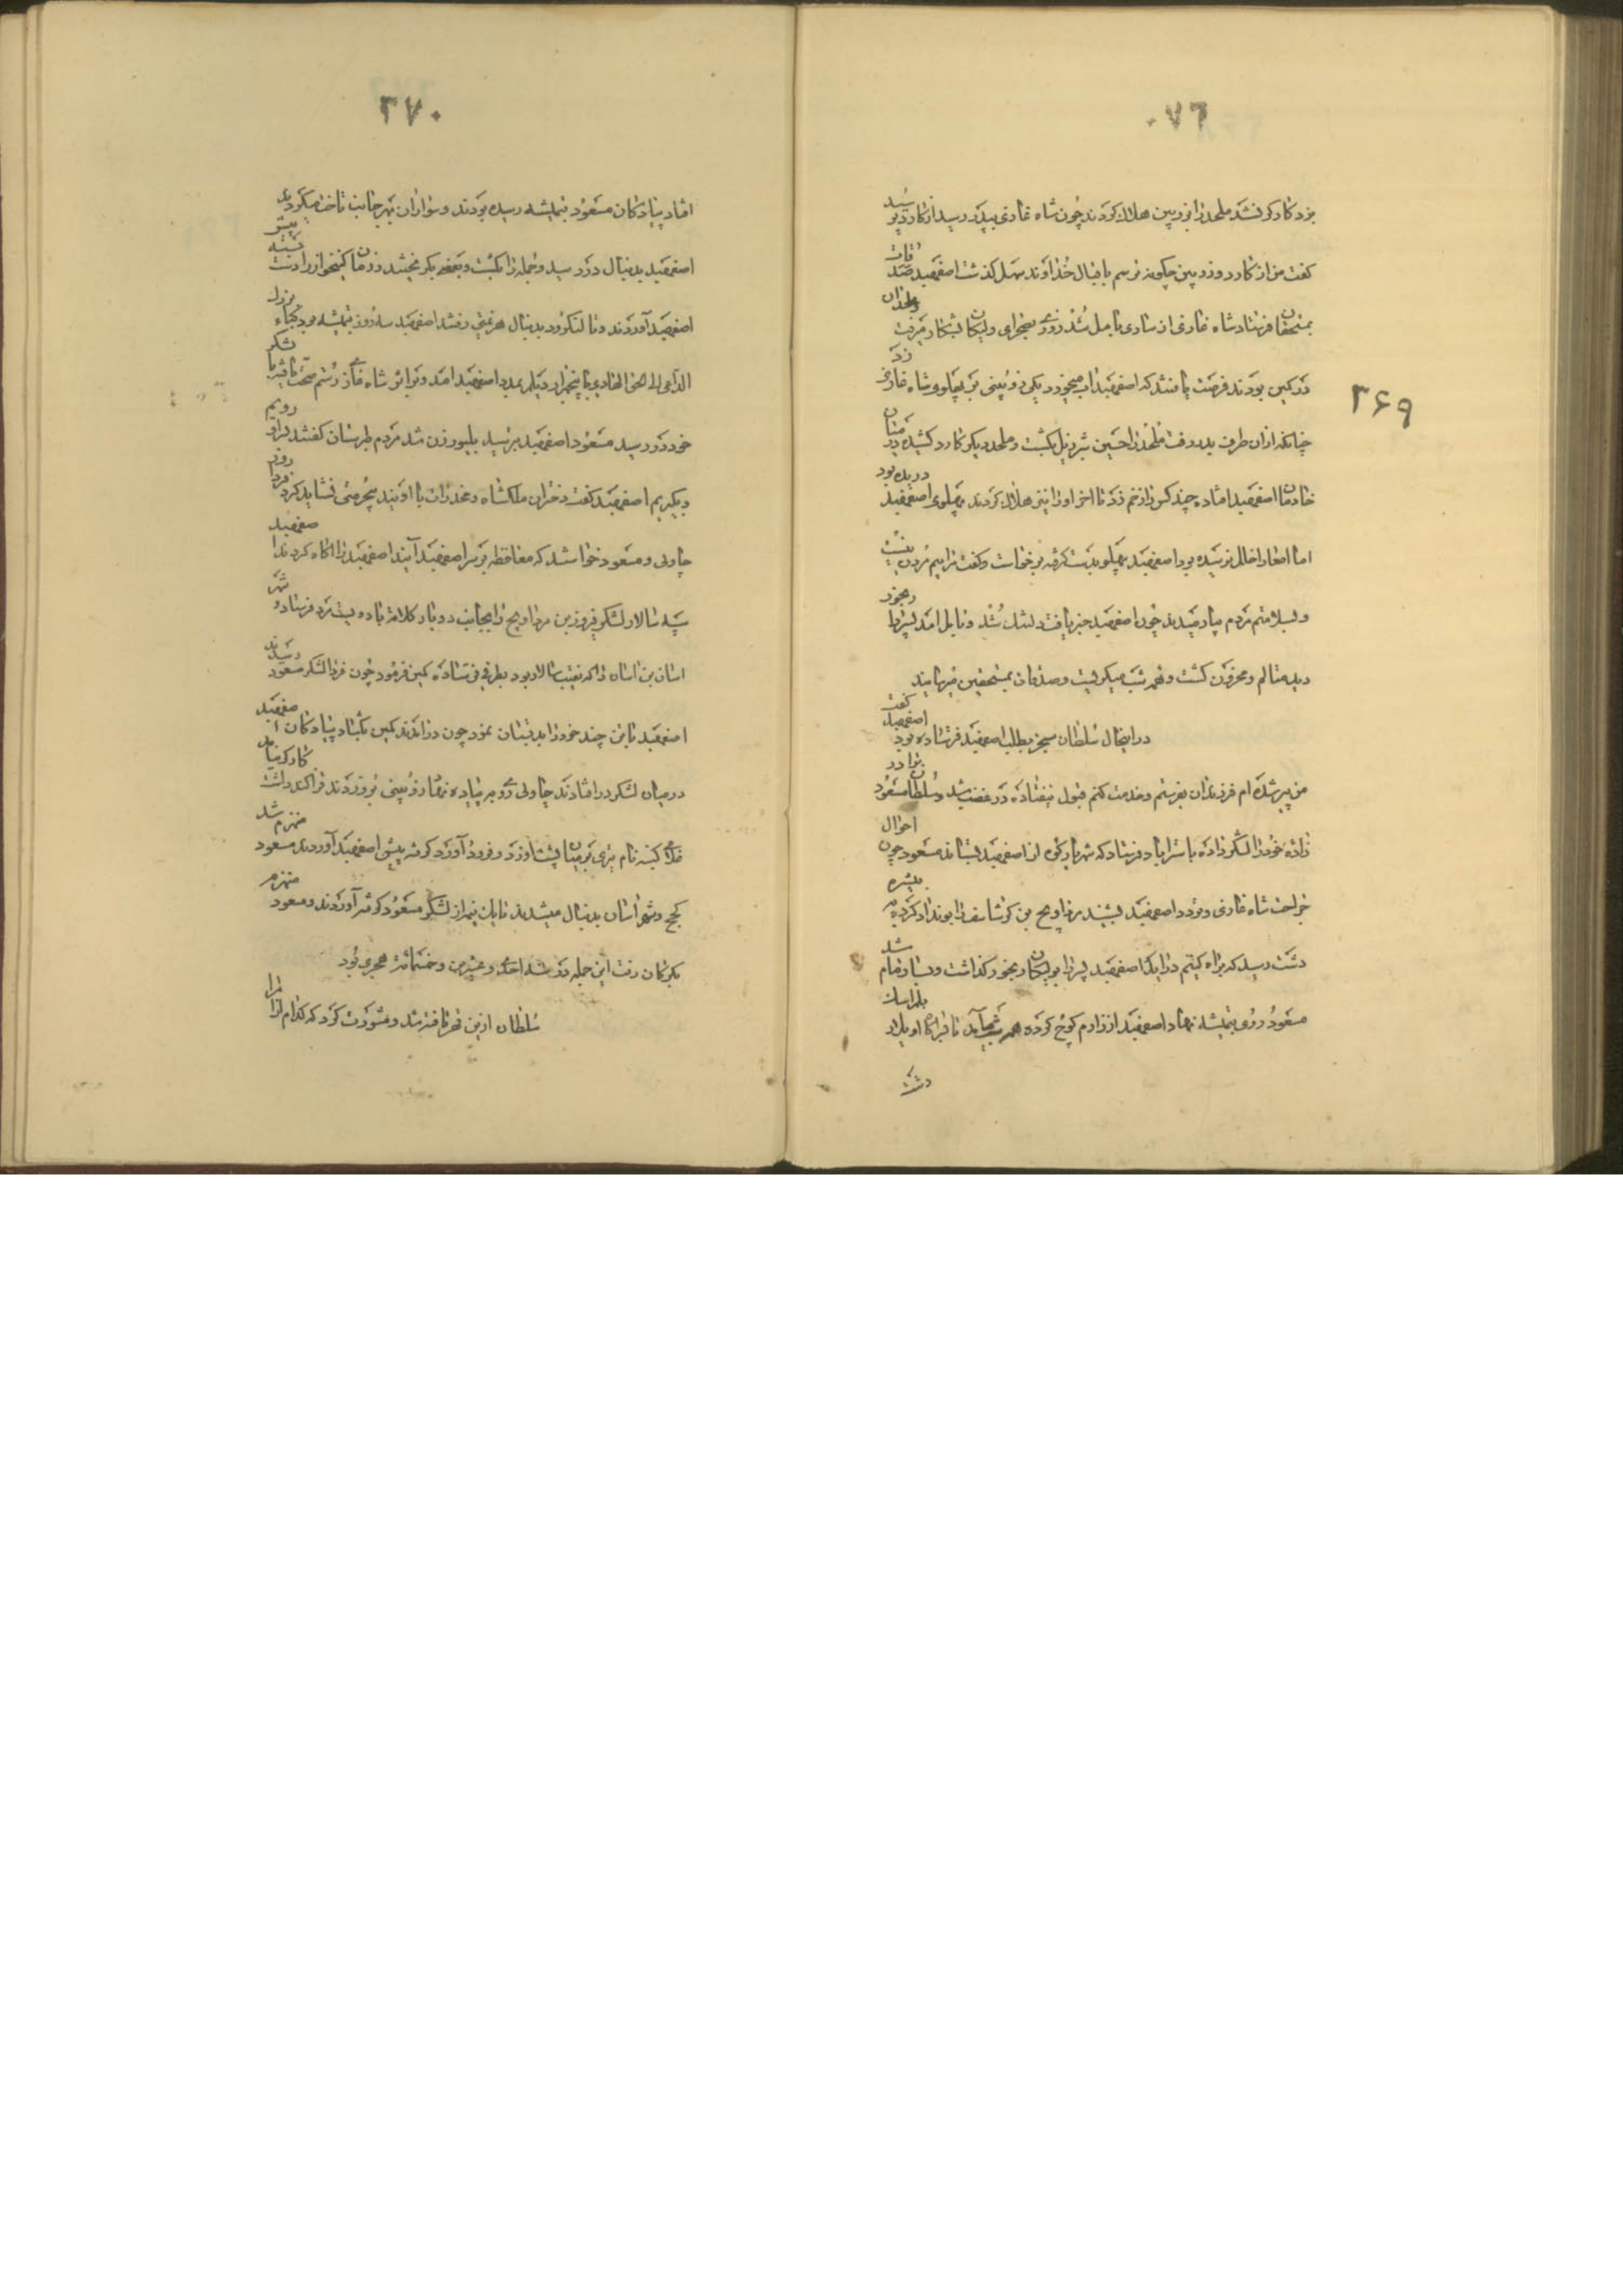 ۳۶۹
بزد کارگر نشد ملحد را بزوبین هلاک کردند چون شاه غازی بپدر رسید از کارد پرسید
گفت من از کارد و زوبین چگونه ترسم باقبال خداوند سهل گذشت اصفهبد صدقات
بمستحقان فرستاد شاه غازی از ساری بآمل شد روزی بصحرای ولیکان بشکار میرفت ملحدان
در کمین بودند فرصت یافتند که اصفهبد آب میخورد یکی زوبینی بر پهلوی شاه غازی زد
چنانکه ازان طرف بدر رفت ملحد را حسین شردنیل بکشت و ملحد دیگر کارد کشیده در میان
خادمان اصفهبد افتاده چند کس را زخم زد تا آخر او را نیز هلاک کردند پهلوی اصفهبد دریده بود
اما امعا را خلل نرسیده بود اصفهبد پهلو بدست گرفته برخواست و گفت مرا بیم مردن نیست
و بسلامتم مردم بیارمیدند چون اصفهبد خبر یافت دلتنگ شد و تا بآمل آمد پسر را رنجور
دید متالم و محزون گشت و همه شب میگریست و صدقات بمستحقین میرسانید
در اینحال سلطان سنجر بطلب اصفهبد فرستاده بود اصفهبد گفت
من پیر شده‌ام فرزندان بفرستم و خدمت کنم قبول نیفتاده در غضب شد و سلطان مسعود برادر
زاده خود را لشکر داده باستراباد فرستاد که شهریارکوه از اصفهبد بستاند مسعود چون احوال
جراحت شاه غازی و درد اصفهبد بشنید مرداویج بن کرشاسف را بوندادکرده به بیشه
دشت رسید که براه کیتم درآید اصفهبد پسر را بولیکان رنجور گذاشت و بسارو تمام شد
مسعود روی بتمیشه نهاد اصفهبد از زارم کوچ کرده همه شب میآمد تا قراکلاو بلادر بلهراسان
دشت
۳۷۰
افتاد پیادگان مسعود بتمیشه رسیده بودند و سواران بهر جانب تاخت میکردند
اصفهبد بدنبال در رسید و جمله را بکشت و بعضی بگریختند و زمان کیخواز را دست بسته پیش
اصفهبد آوردند و تا لنکرود بدنبال هزیمتی رفتند اصفهبد سه روز بتمیشه بود کیاء بزرک
الداعی الی الحق الهادی با پنجهزار دیلم بمدد اصفهبد آمد و بر اثر شاه غازی رستم صحت یافته با لشکر
خود در رسید مسعود اصفهبد بترسید بلیورزن شد مردم طبرستان گفتند فرا او رویم
و بگیریم اصفهبد گفت دختران ملکشاه و مخدرات با اویند بیحرمتی نشاید کرد فردا روزی
چاولی و مسعود خواستند که مغافصه بر سر اصفهبد آیند اصفهبد را آگاه کردند اصفهبد
سپه سالار لشکر فیروز بن مرداویج را بجانب دوباد کلاته با دویست مرد فرستاد و شهر
اسان بن اسان را که نقیب سالار بود بطرفی فرستاده کمین فرمود چون فردا لشکر مسعود رسیدند
اصفهبد با تنی چند خود را بدیشان نمود چون در راندند کمین بگشاد پیادگان اصفهبد
در میان لشکر در افتادند چاولی روی بر پیاده نهاد زوبینی بر وزدند قزاکند داشت کارگر نیامد
غلامی کبنه نام تیری بر میان پشت او زد و فرود آورد گرفته پیش اصفهبد آوردند مسعود منهزم شد
کجج و شهراسان بدنبال میشدند تا یک نیمه از لشکر مسعود گرفته آوردند و مسعود منهزم
بکرکان رفت این جمله در سنه احدی و عشرین و خمسمائه هجری بود
سلطان ازین قهر تافته شد و مشورت کرد که کدام از امرا